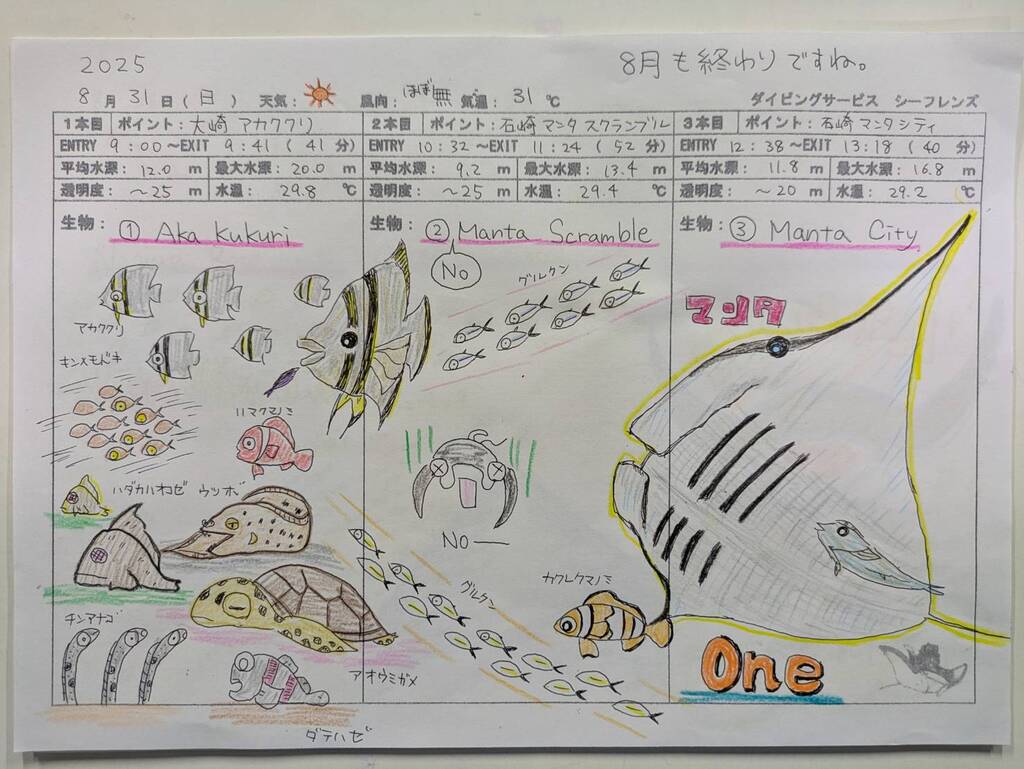 2025
8月も終わりですね。
8月31日(日) 天気: 風向:ほぼ無 気温:31℃ ダイビングサービス シーフレンズ
1本目 ポイント:大崎 アカククリ
ENTRY 9:00~EXIT 9:41(41分)
平均水深:12.0m 最大水深:20.0m
透明度:~25m 水温:29.8℃
生物:① Aka Kukuri
アカククリ
キンメモドキ
ハマクマノミ
ハダカハオコゼ ウツボ
チンアナゴ
アオウミガメ
ダテハゼ
2本目 ポイント:石崎 マンタスクランブル
ENTRY 10:32~EXIT 11:24(52分)
平均水深:9.2m 最大水深:13.4m
透明度:~25m 水温:29.4℃
生物:② Manta Scramble
No
グルクン
No—
グルクン
3本目 ポイント:石崎 マンタシティ
ENTRY 12:38~EXIT 13:18(40分)
平均水深:11.8m 最大水深:16.8m
透明度:~20m 水温:29.2℃
生物:③ Manta City
マンタ
カクレクマノミ
One